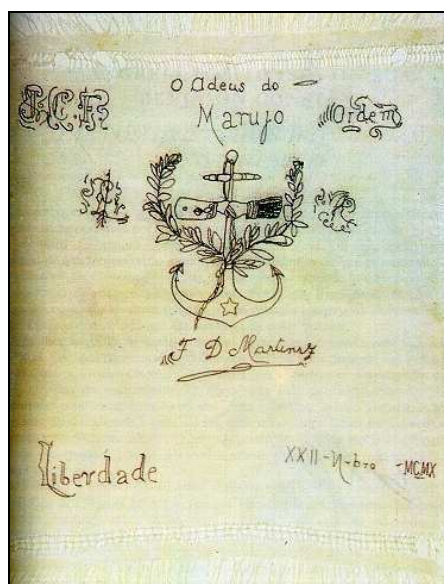 O Adeus do
J.C.F. Marujo Ordem
F D Martins
Liberdade XXII-N-bro -MCMX